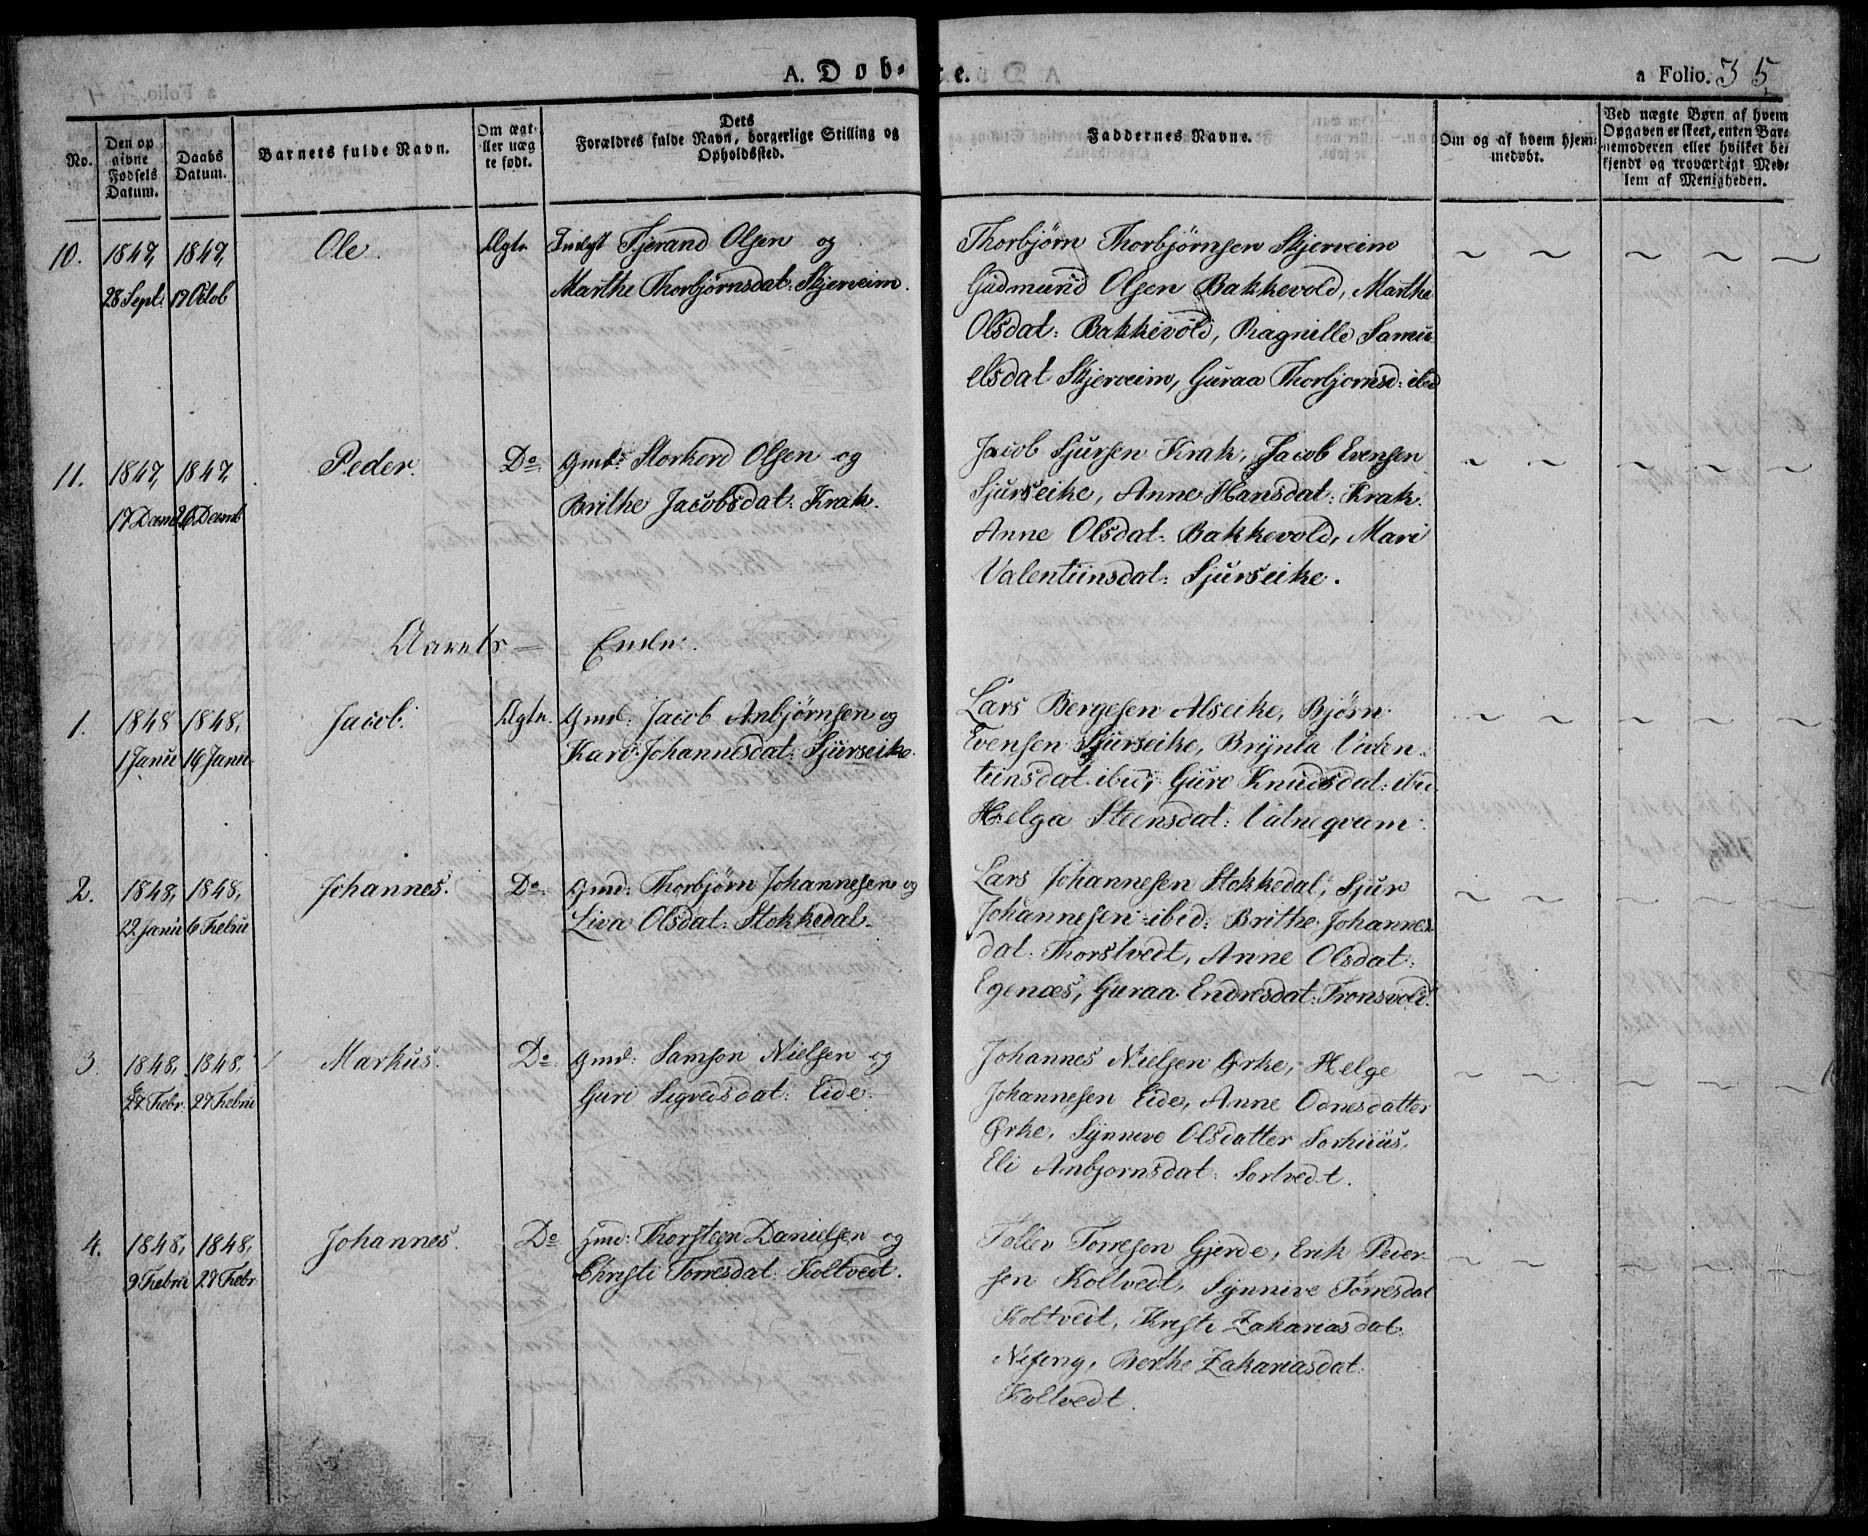 A. Døb-te.
a Folio. 35
No.
Den opgivne Fødsels Datum.
Daabs Datum.
Barnets fulde Navn.
Om ægt- eller uægte født.
Dets Forældres fulde Navn, borgerlige Stilling og Opholdssted.
Faddernes Navne.
Om og af hvem hjemmedøbt.
Ved uægte Børn af hvem Opgaven er skeet, enten Barnemoderen eller hvilket bekjendt og troværdigt Medlem af Menigheden.
10. 1847, 1847, Ole. Ægte Indgst Tjerand Olsen og
28 Sept: 17 Octob Marthe Thorbjørnsdat: Skjerveim.
Thorbjørn Thorbjørnsen Skjerveim
Gudmund Olsen Bakkevold, Marthe
Olsdat: Bakkevold, Ragnille Samu-
elsdat Skjerveim, Guraa Thorbjornsd: ibid
11. 1847, 1847, Peder. Do Gmd: Storkord Olsen og
17 Decmb 26 Decmb Brithe Jacobsdat: Krak.
Jacob Sjursen Krak, Jacob Evensen
Sjurseike, Anne Hansdat: Krak.
Anne Olsdat: Bakkevold, Mari
Valentiinsdat: Sjurseike.
Aarets Ende.
1. 1848 1848, Jacob. Ægte. Gmd: Jacob Anbjørnsen og
1 Janu 19 Janu. Kari Johannesdat: Sjurseike.
Lars Bergesen Alseike, Bjørn
Evensen Sjurseike, Brynla Valen-
tiinsdat ibid, Guro Knudsdat: ibid
Helga Steensdat: Valneqvam.
2. 1848, 1848, Johannes. Do Gmd: Thorbjørn Johannesen og
22 Janu 6 Febru Liva Olsdat: Stokkedal.
Lars Johannesen Stokkedal, Sjur
Johannesen ibid: Brithe Johannes-
dat. Thorstvedt, Anne Olsdat:
Egenæs, Guraa Endresdat: Tronsvold.
3. 1848, 1848, Markus. Do Gmd: Samson Nielsen og
27 Febr. 27 Febru Guri Sigvedsdat: Eide.
Johannes Nielsen Ørke, Helge
Johannesen Eide, Anne Odnesdatter
Ørke, Synneve Olsdatter Sorhuus,
Eli Anbjornsdat: Sortvedt.
4. 1848, 1848, Johannes. Do Gmd: Thorsteen Danielsen og
9 Febru 27 Febr Christi Torresdat: Koltvedt.
Tollev Torresen Gjerde, Erik Peder-
sen Koltvedt, Synneve Torresdat
Koltvedt, Kristi Zakariasdat:
Berthe Zakariasdat:
Koltvedt.